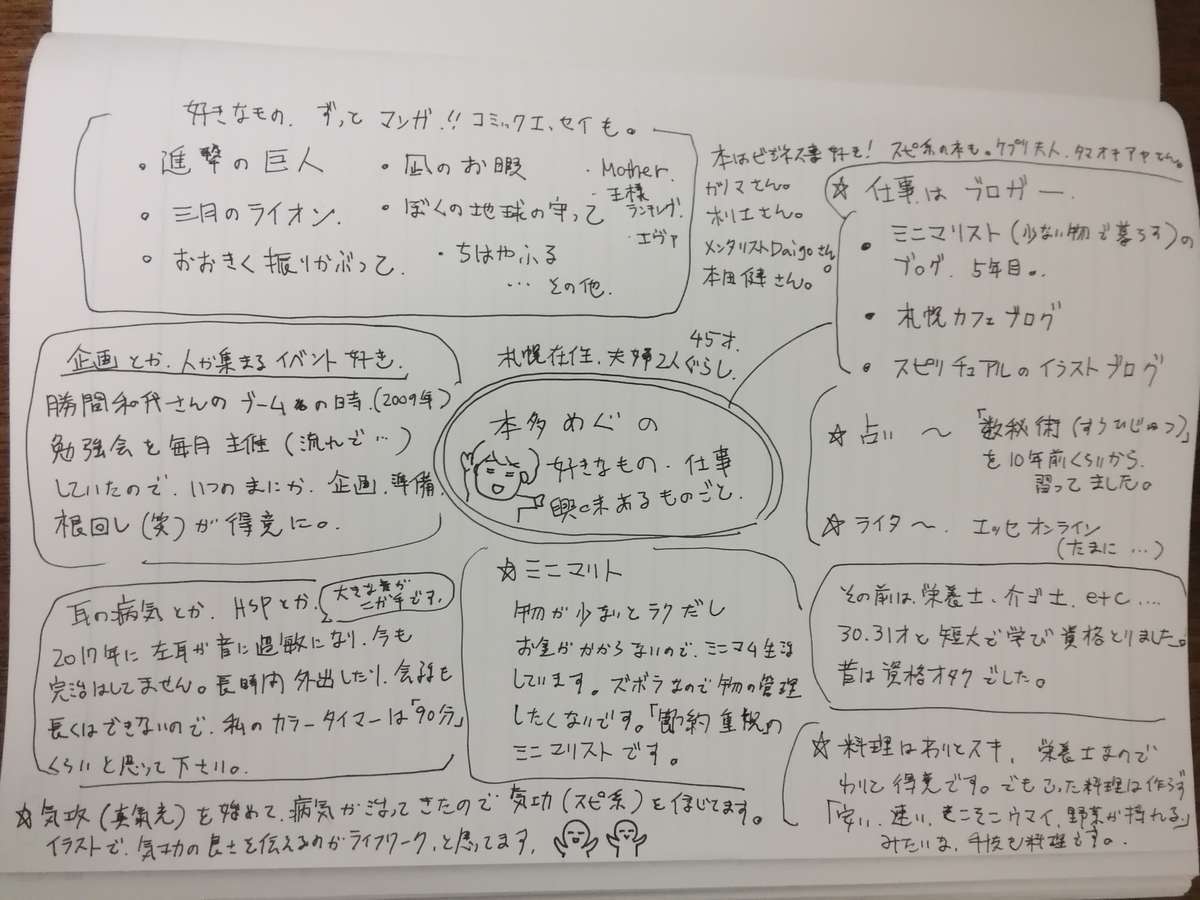 好きなもの。ずっとマンガ!!コミックエッセイも。
・進撃の巨人
・三月のライオン
・おおきく振りかぶって
・凪のお暇
・ぼくの地球の守って
・ちはやふる
・Mother.
・王様
ランキング.
・エヴァ
… その他.
本はビジネス書好き! スピ系の本も。ケプリ夫人、タマオキアヤさん。
ガリマさん。
ホリエさん。
メンタリストDaigoさん。
本田健さん。
☆ 仕事はブロガー
・ミニマリスト(少ない物で暮らす)の
ブログ. 5年目。
・札幌カフェブログ
・スピリチュアルのイラストブログ
企画とか、人が集まるイベント好き.
勝間和代さんのブームの時.(2009年)
勉強会を毎月主催(流れで…)
していたので、いつのまにか、企画、準備、
根回し(笑)が得意に。
札幌在住、夫婦2人ぐらし.
45才.
本多めぐの
好きなもの・仕事
興味あるものごと.
☆占い〜「数秘術(すうひじゅつ)」
を10年前くらいから
習ってました。
☆ライター〜. エッセオンライン
(たまに…)
耳の病気とか、HSPとか.
大きな音が
ニガ手です。
2017年に左耳が音に過敏になり、今も
完治はしてません。長時間外出したり、会話も
長くはできないので、私のカラータイマーは「90分」
くらいと思って下さい。
☆ミニマリト
物が少ないとラクだし
お金がかからないので、ミニマム生活
しています。ズボラなので物の管理
したくないです。「節約重視」の
ミニマリストです。
その前は、栄養士、介ゴ士、etc….
30.31才と短大で学び資格とりました。
昔は資格オタクでした。
☆料理はわりとスキ、栄養士なので
わりと得意です。でもこった料理は作らず
「安い、速い、そこそこウマイ、野菜が採れる」
みたいな、手抜き料理です。
☆気功(真氣光)を始めて、病気が治ってきたので気功(スピ系)を信じてます。
イラストで、気功の良さを伝えるのがライフワーク、と思ってます。